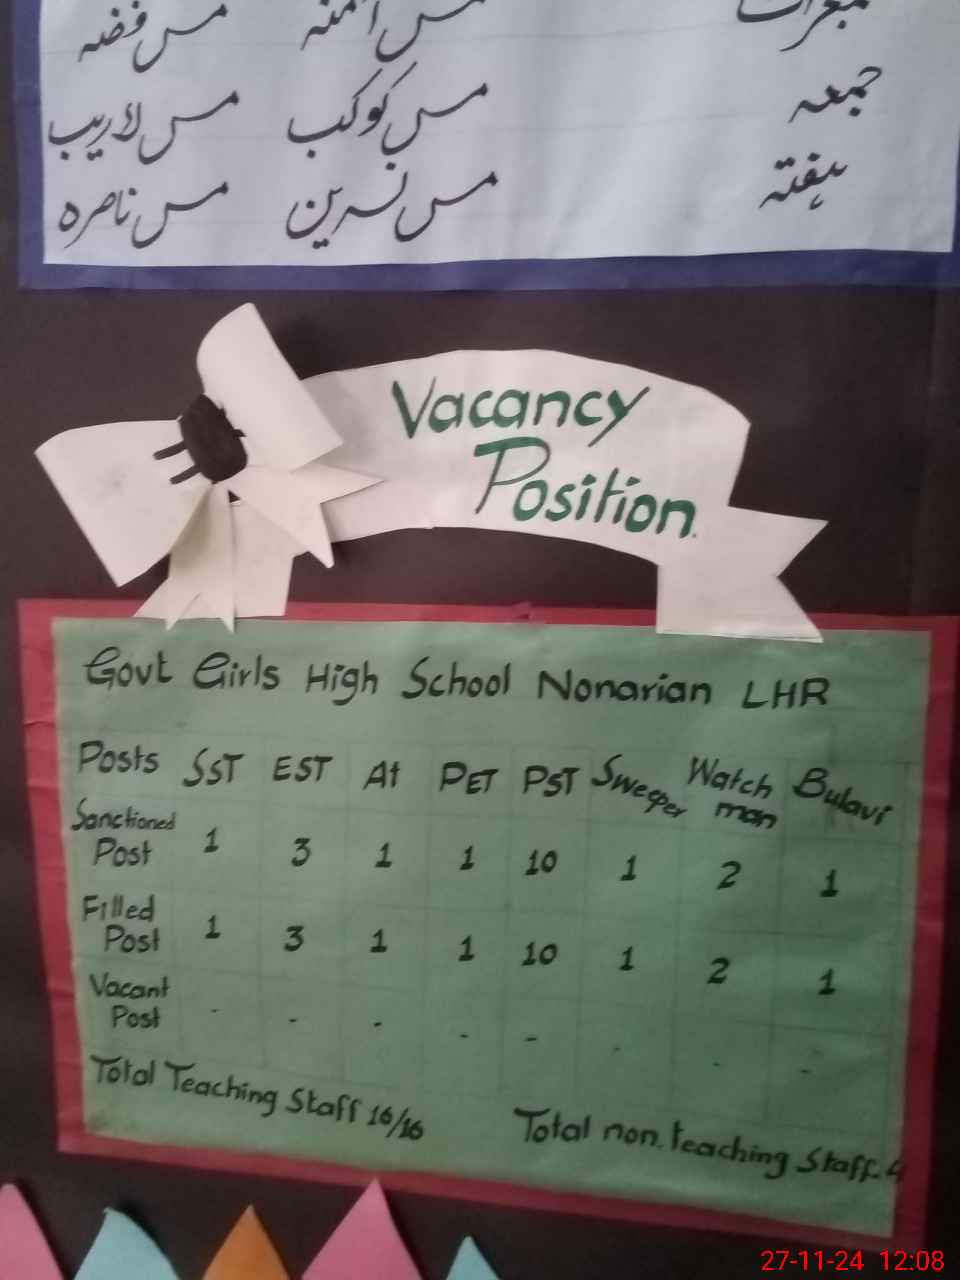 مس فضہ مس آمنہ
جمعہ مس کوکب مس لاریب
ہفتہ مس نسرین مس ناصرہ
Vacancy
Position.
Govt Girls High School Nonarian LHR
Posts SST EST At PET PST Sweeper Watch man Bulavi
Sanctioned Post 1 3 1 1 10 1 2 1
Filled Post 1 3 1 1 10 1 2 1
Vacant Post - - - - - - - -
Total Teaching Staff 16/16 Total non. teaching Staff-4
27-11-24 12:08